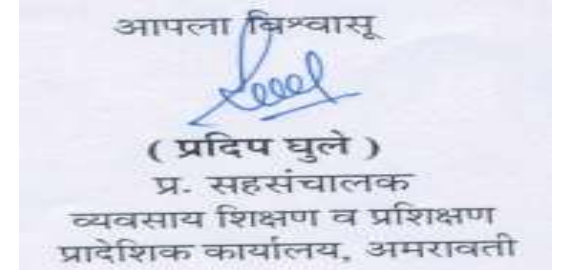 आपला विश्वासू
( प्रदिप घुले )
प्र. सहसंचालक
व्यवसाय शिक्षण व प्रशिक्षण
प्रादेशिक कार्यालय, अमरावती